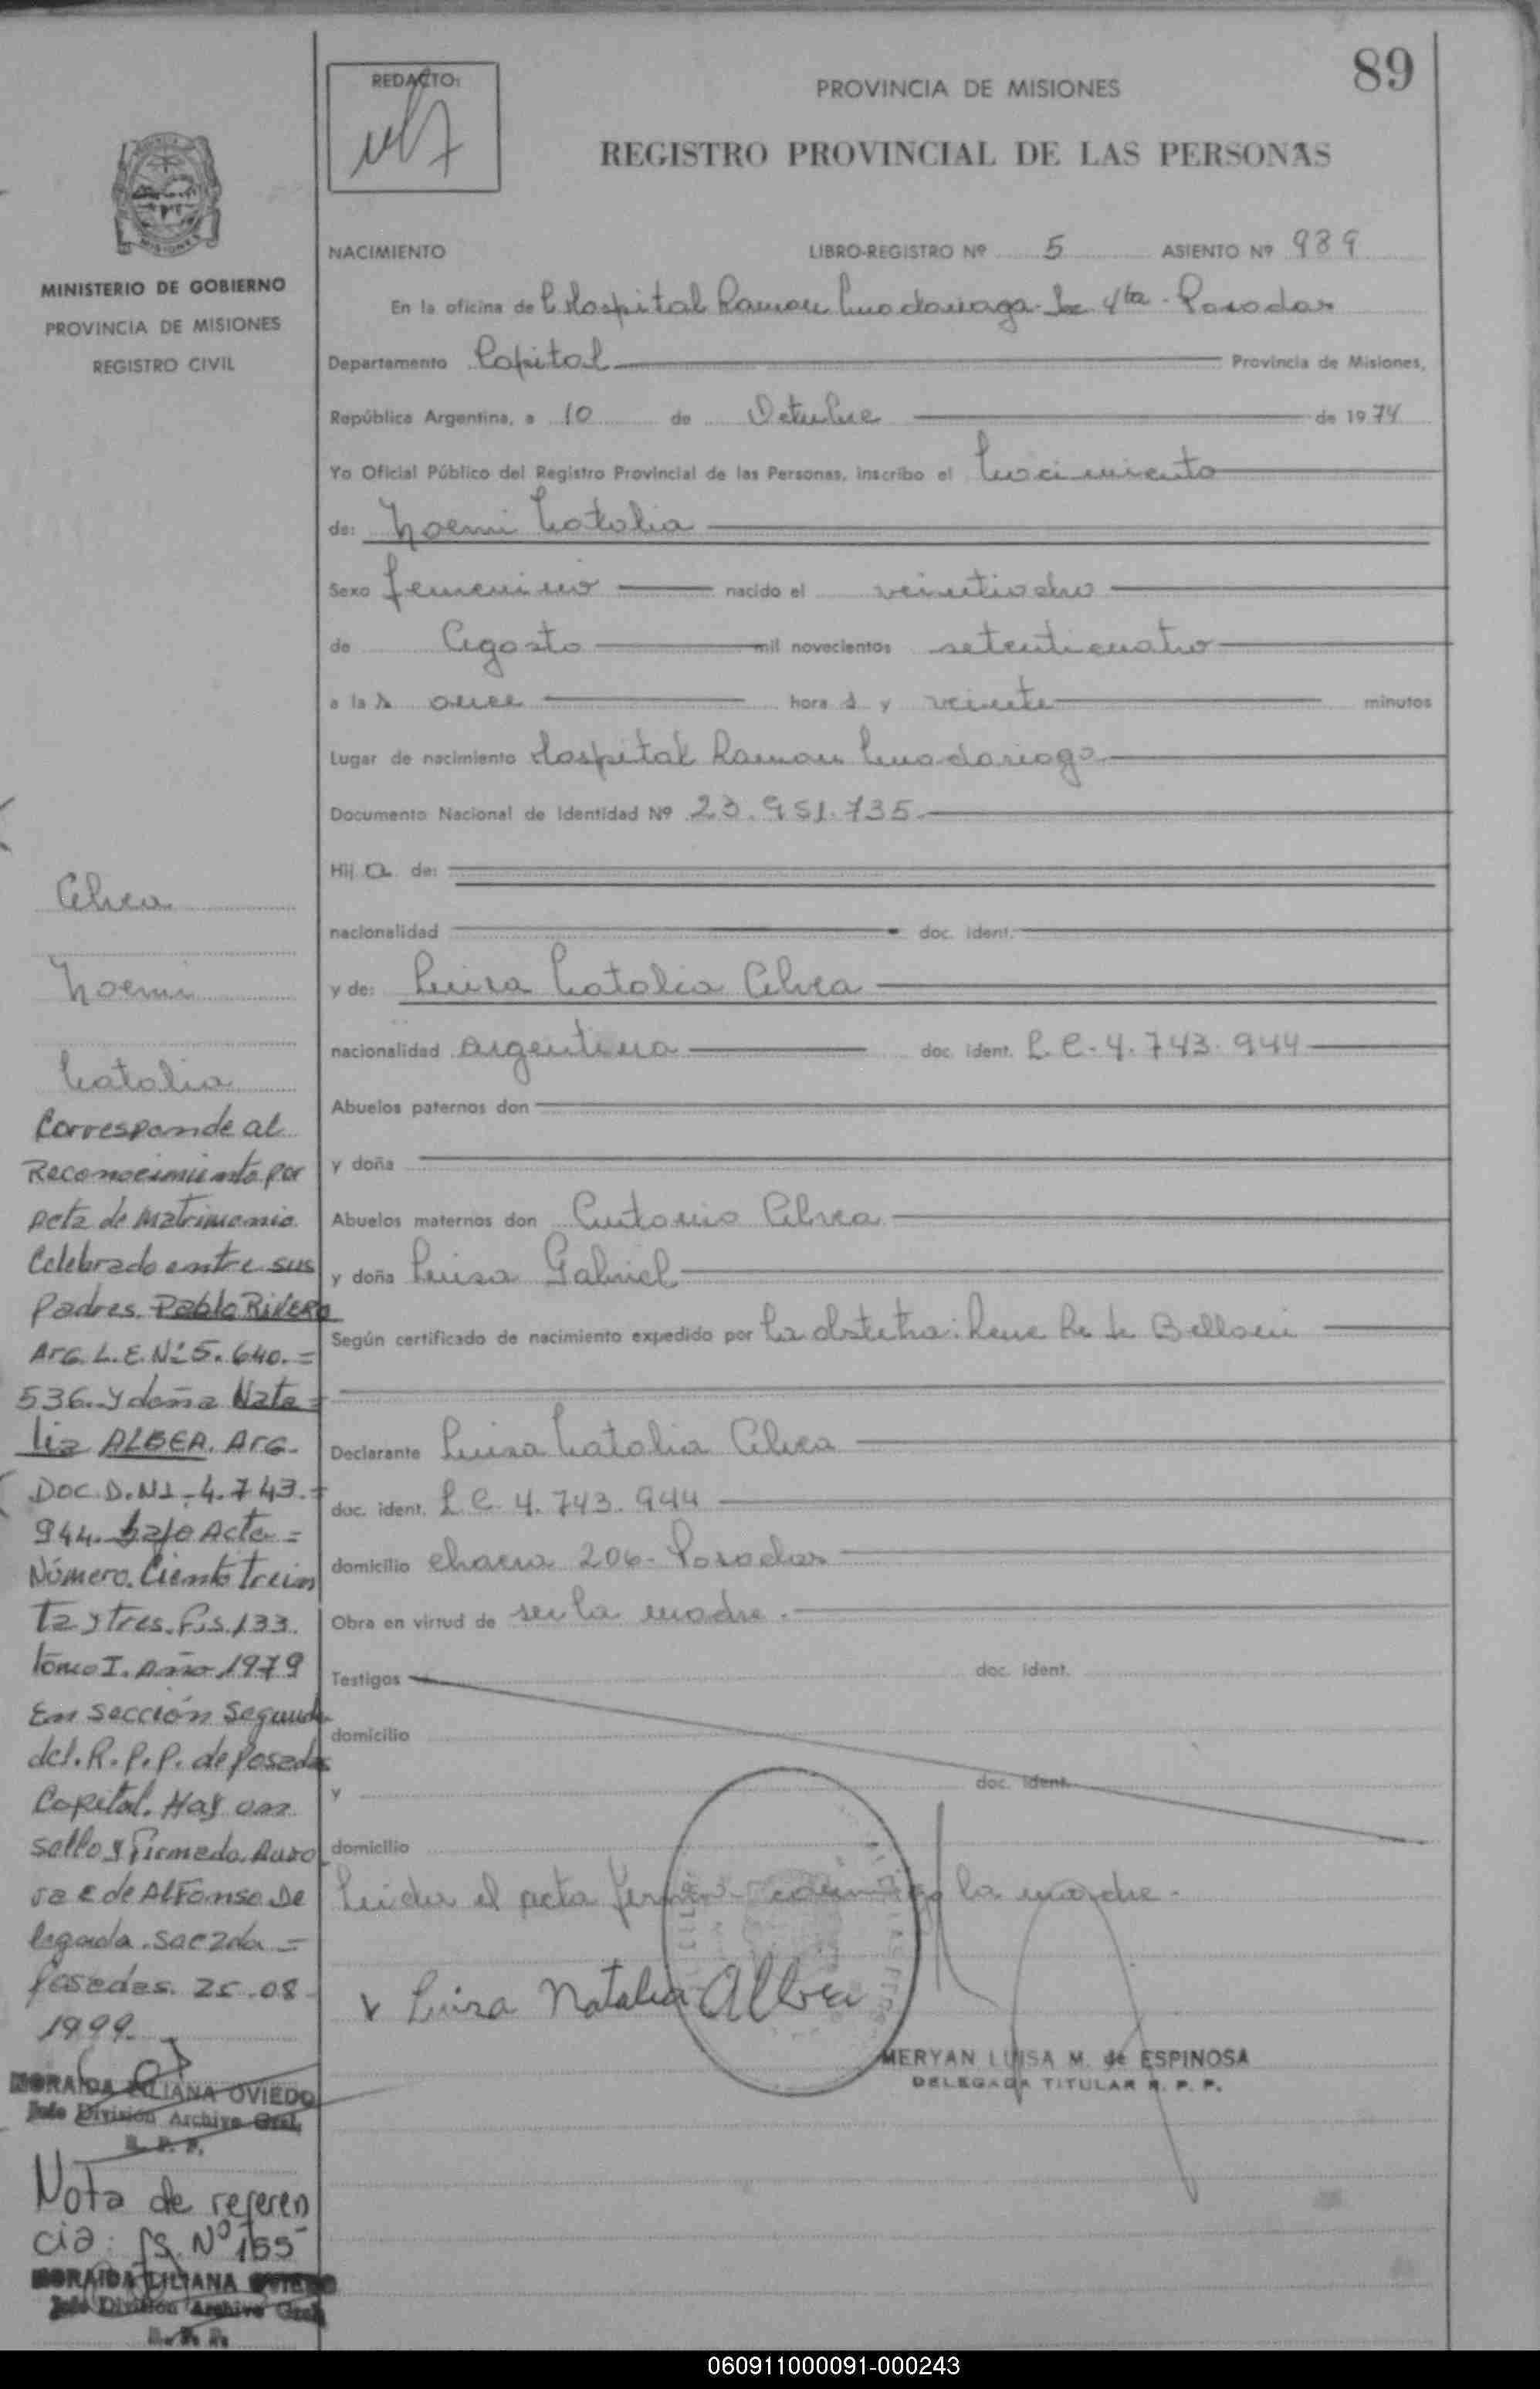 89
REDACTO:
PROVINCIA DE MISIONES
REGISTRO PROVINCIAL DE LAS PERSONAS
MISIONES
MINISTERIO DE GOBIERNO
PROVINCIA DE MISIONES
REGISTRO CIVIL
NACIMIENTO LIBRO-REGISTRO Nº 5 ASIENTO Nº 989
En la oficina de Hospital Ramon Madariaga - Sec 4ta - Posadas
Departamento Capital Provincia de Misiones,
República Argentina, a 10 de Octubre de 1974
Yo Oficial Público del Registro Provincial de las Personas, inscribo el Nacimiento
de: Noemi Natalia
Sexo femenino nacido el veintiocho
de Agosto mil novecientos setenticuatro
a las once horas y veinte minutos
Lugar de nacimiento Hospital Ramon Madariaga
Documento Nacional de Identidad Nº 23.951.735.
Hija de:
nacionalidad doc. ident.
y de: Luisa Natalia Albea
nacionalidad argentina doc. ident. L.C. 4.743.944
Abuelos paternos don
y doña
Abuelos maternos don Antonio Albea
y doña Luisa Gabriel
Según certificado de nacimiento expedido por la obstetra: Rene de
Declarante Luisa Natalia Albea
doc. ident. L C 4.743.944
domicilio chacra 206 - Posadas
Obra en virtud de ser la madre.
Testigos doc. ident.
domicilio
y doc. ident.
domicilio
Leida el acta firma conmigo la madre.
Luisa Natalia Albea
MERYAN LUISA M. de ESPINOSA
DELEGADA TITULAR R. P. P.
Albea
Noemi
Natalia
Corresponde al
Reconocimiento por
acta de matrimonio
Celebrado entre sus
Padres. Pablo RIVERO
Arg. L.E. Nº 5.640.=
536. y doña Nata=
lia ALBEA. Arg.
Doc. D.NI. 4.743.=
944. bajo Acta=
Número. Ciento trein
ta y tres. Fs. 133.
tomo I. Año 1979
En sección Segunda
del. R.P.P. de Posadas
Capital. Hay un
sello y Firmado. Auro
ra E de Alfonso De
legada. Sec 2da=
Posadas. 25.08.
1999.
MORAIDA LILIANA OVIEDO
Jefe División Archivo Gral.
R. P. P.
Nota de referen
cia: fs. Nº 155
MORAIDA LILIANA OVIEDO
Jefe División Archivo Gral.
R. P. P.
060911000091-000243